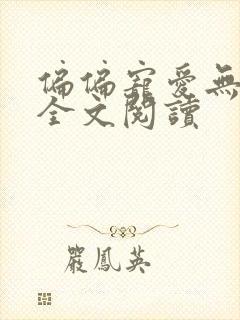 偏偏寵愛無
全文閱讀
嚴鳳英